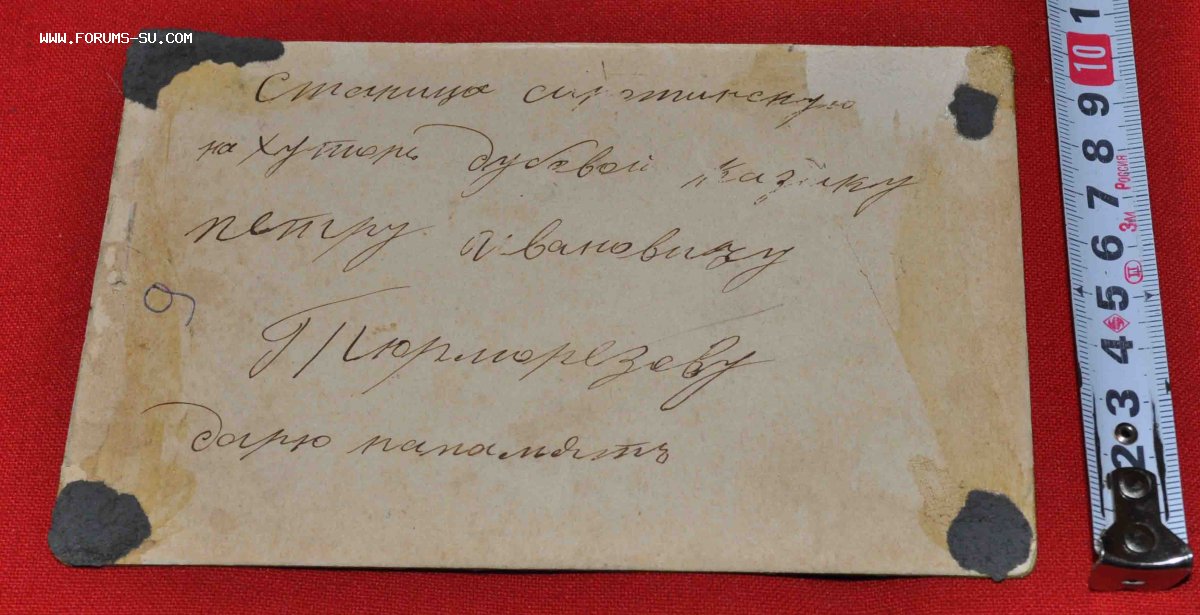 WWW.FORUMS-SU.COM
Станица сиротинскую
на хуторъ дубовой казаку
петру Ивановичу
Тюрморезову
дарю напамять
9
1
10
9
8
7
6
5
4
3
2
Россия
3м
II